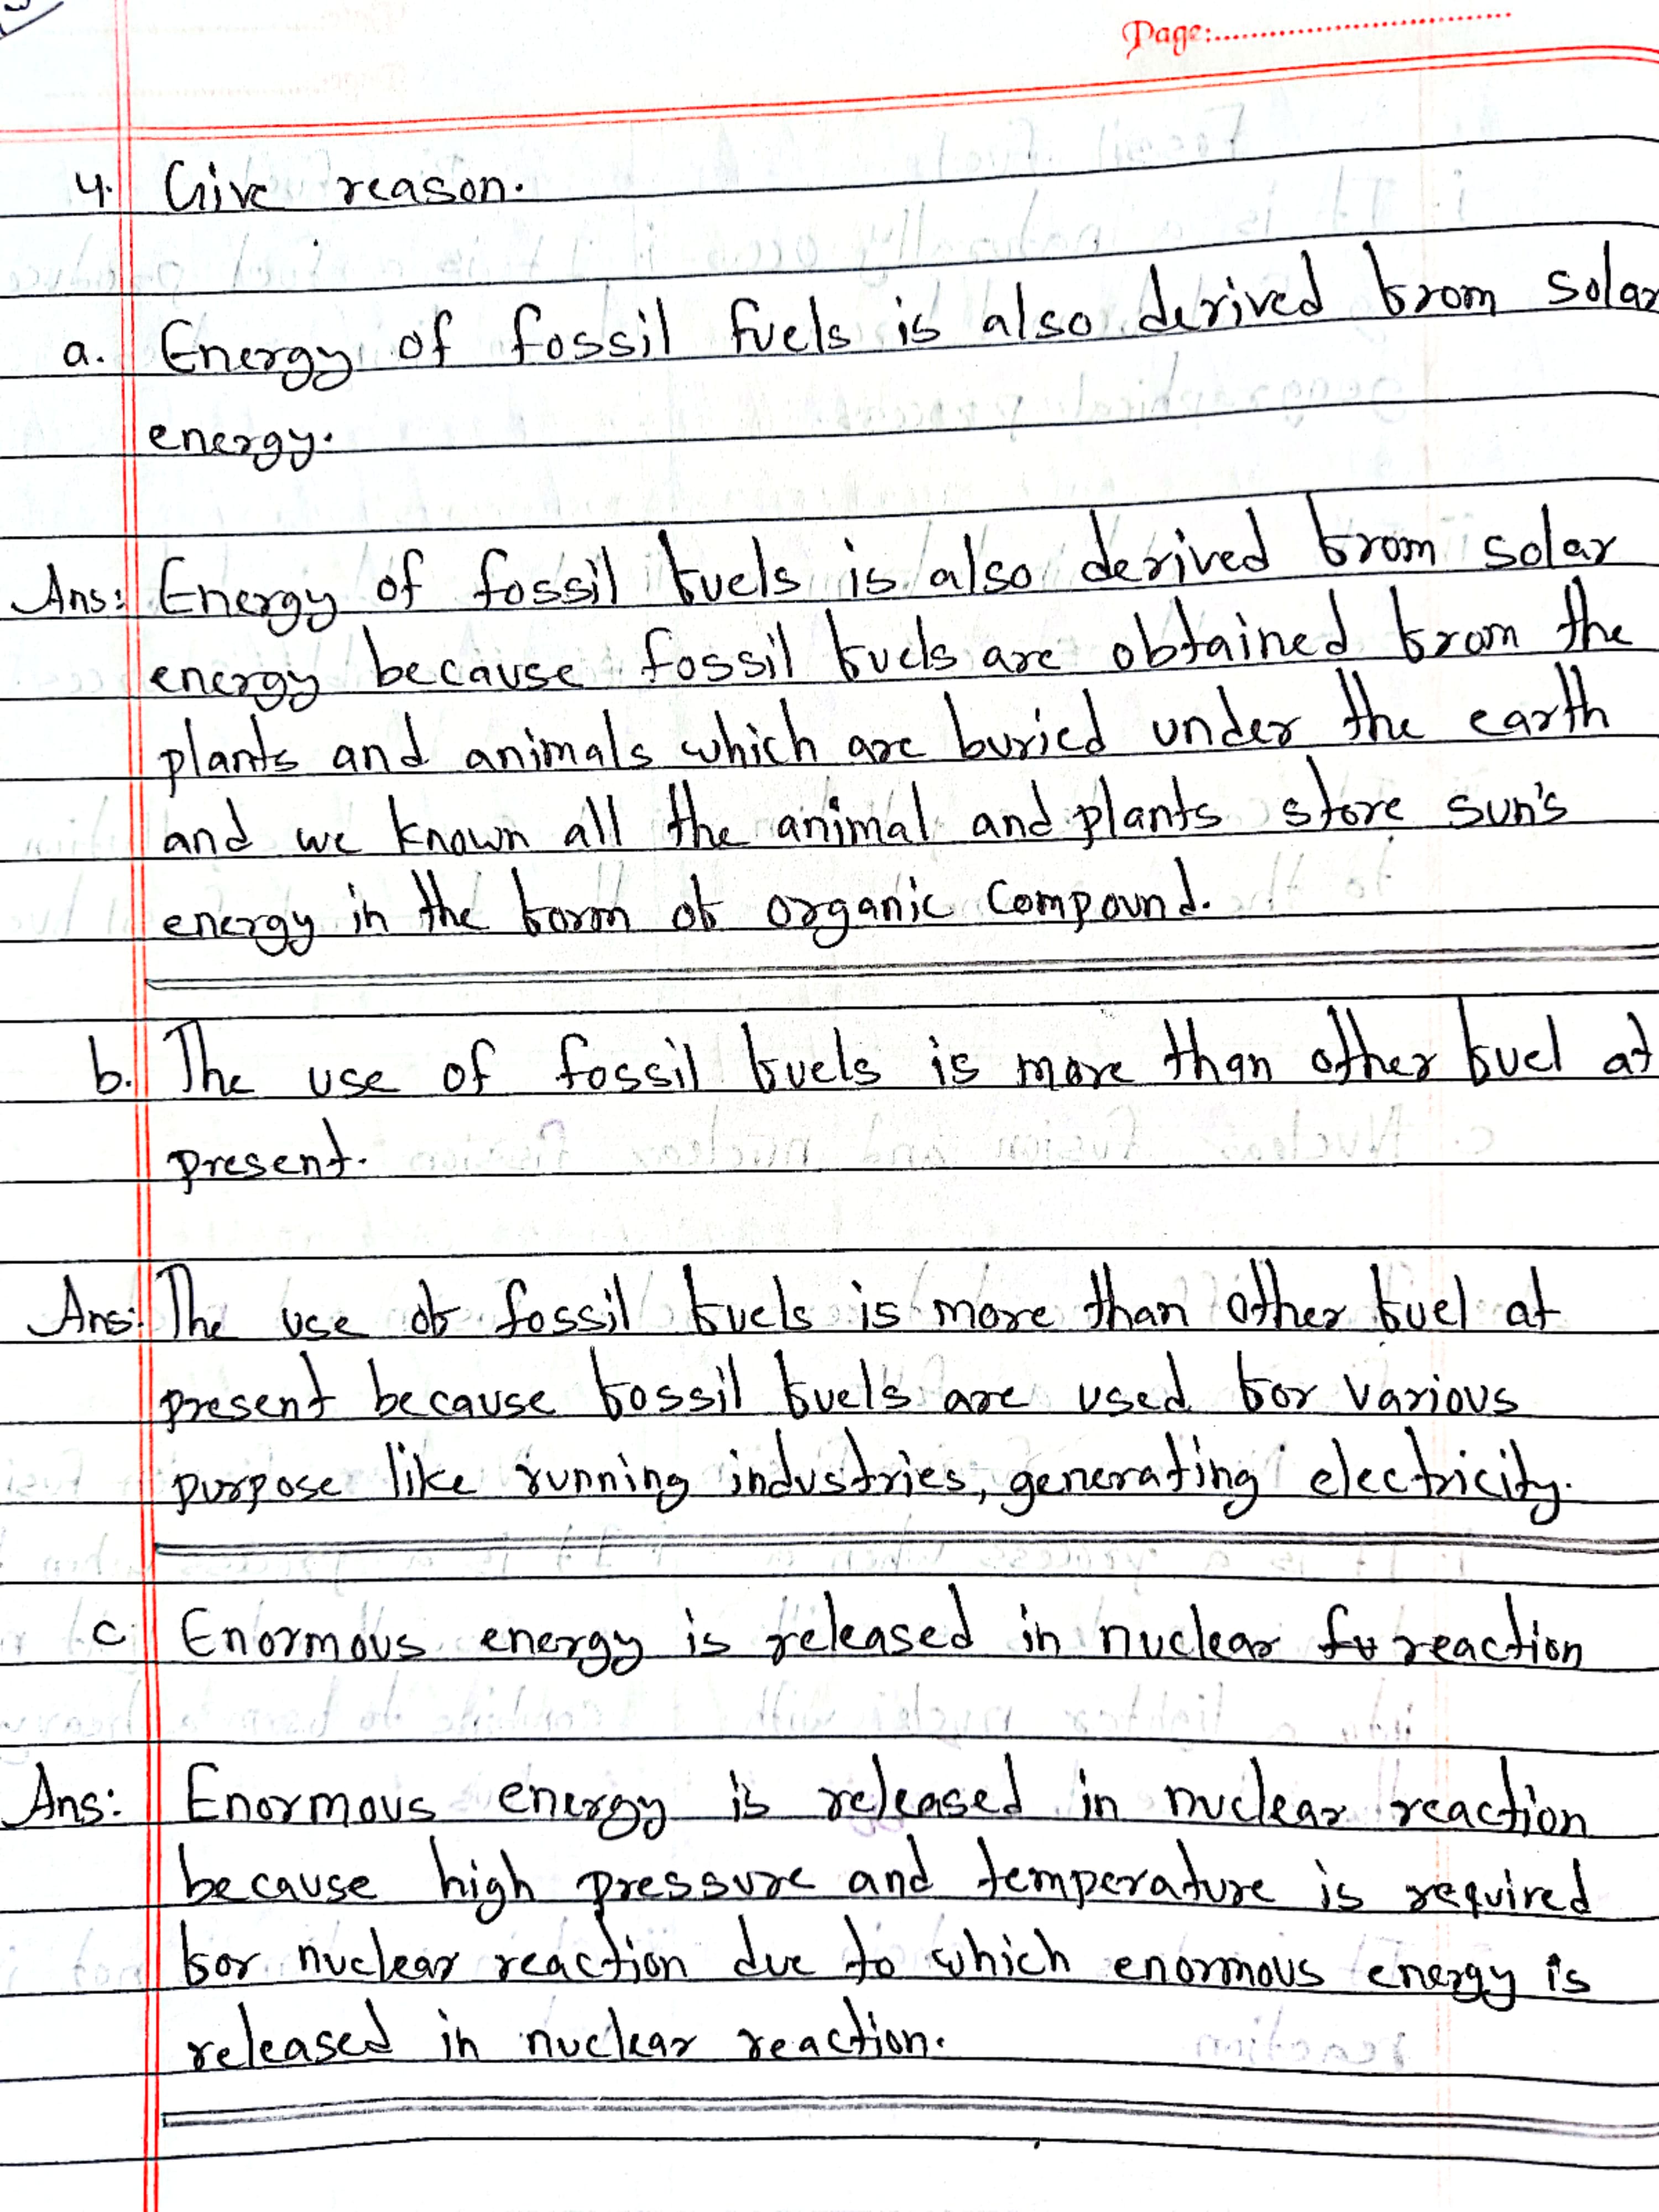 Page:
4. Give reason.
a. Energy of fossil fuels is also derived from solar
energy.
Ans: Energy of fossil fuels is also derived from solar
energy because fossil fuels are obtained from the
plants and animals which are buried under the earth
and we known all the animal and plants store sun's
energy in the form of organic compound.
b. The use of fossil fuels is more than other fuel at
present.
Ans: The use of fossil fuels is more than other fuel at
present because fossil fuels are used for various
purpose like running industries, generating electricity.
c. Enormous energy is released in nuclear reaction
Ans: Enormous energy is released in nuclear reaction
because high pressure and temperature is required
for nuclear reaction due to which enormous energy is
released in nuclear reaction.